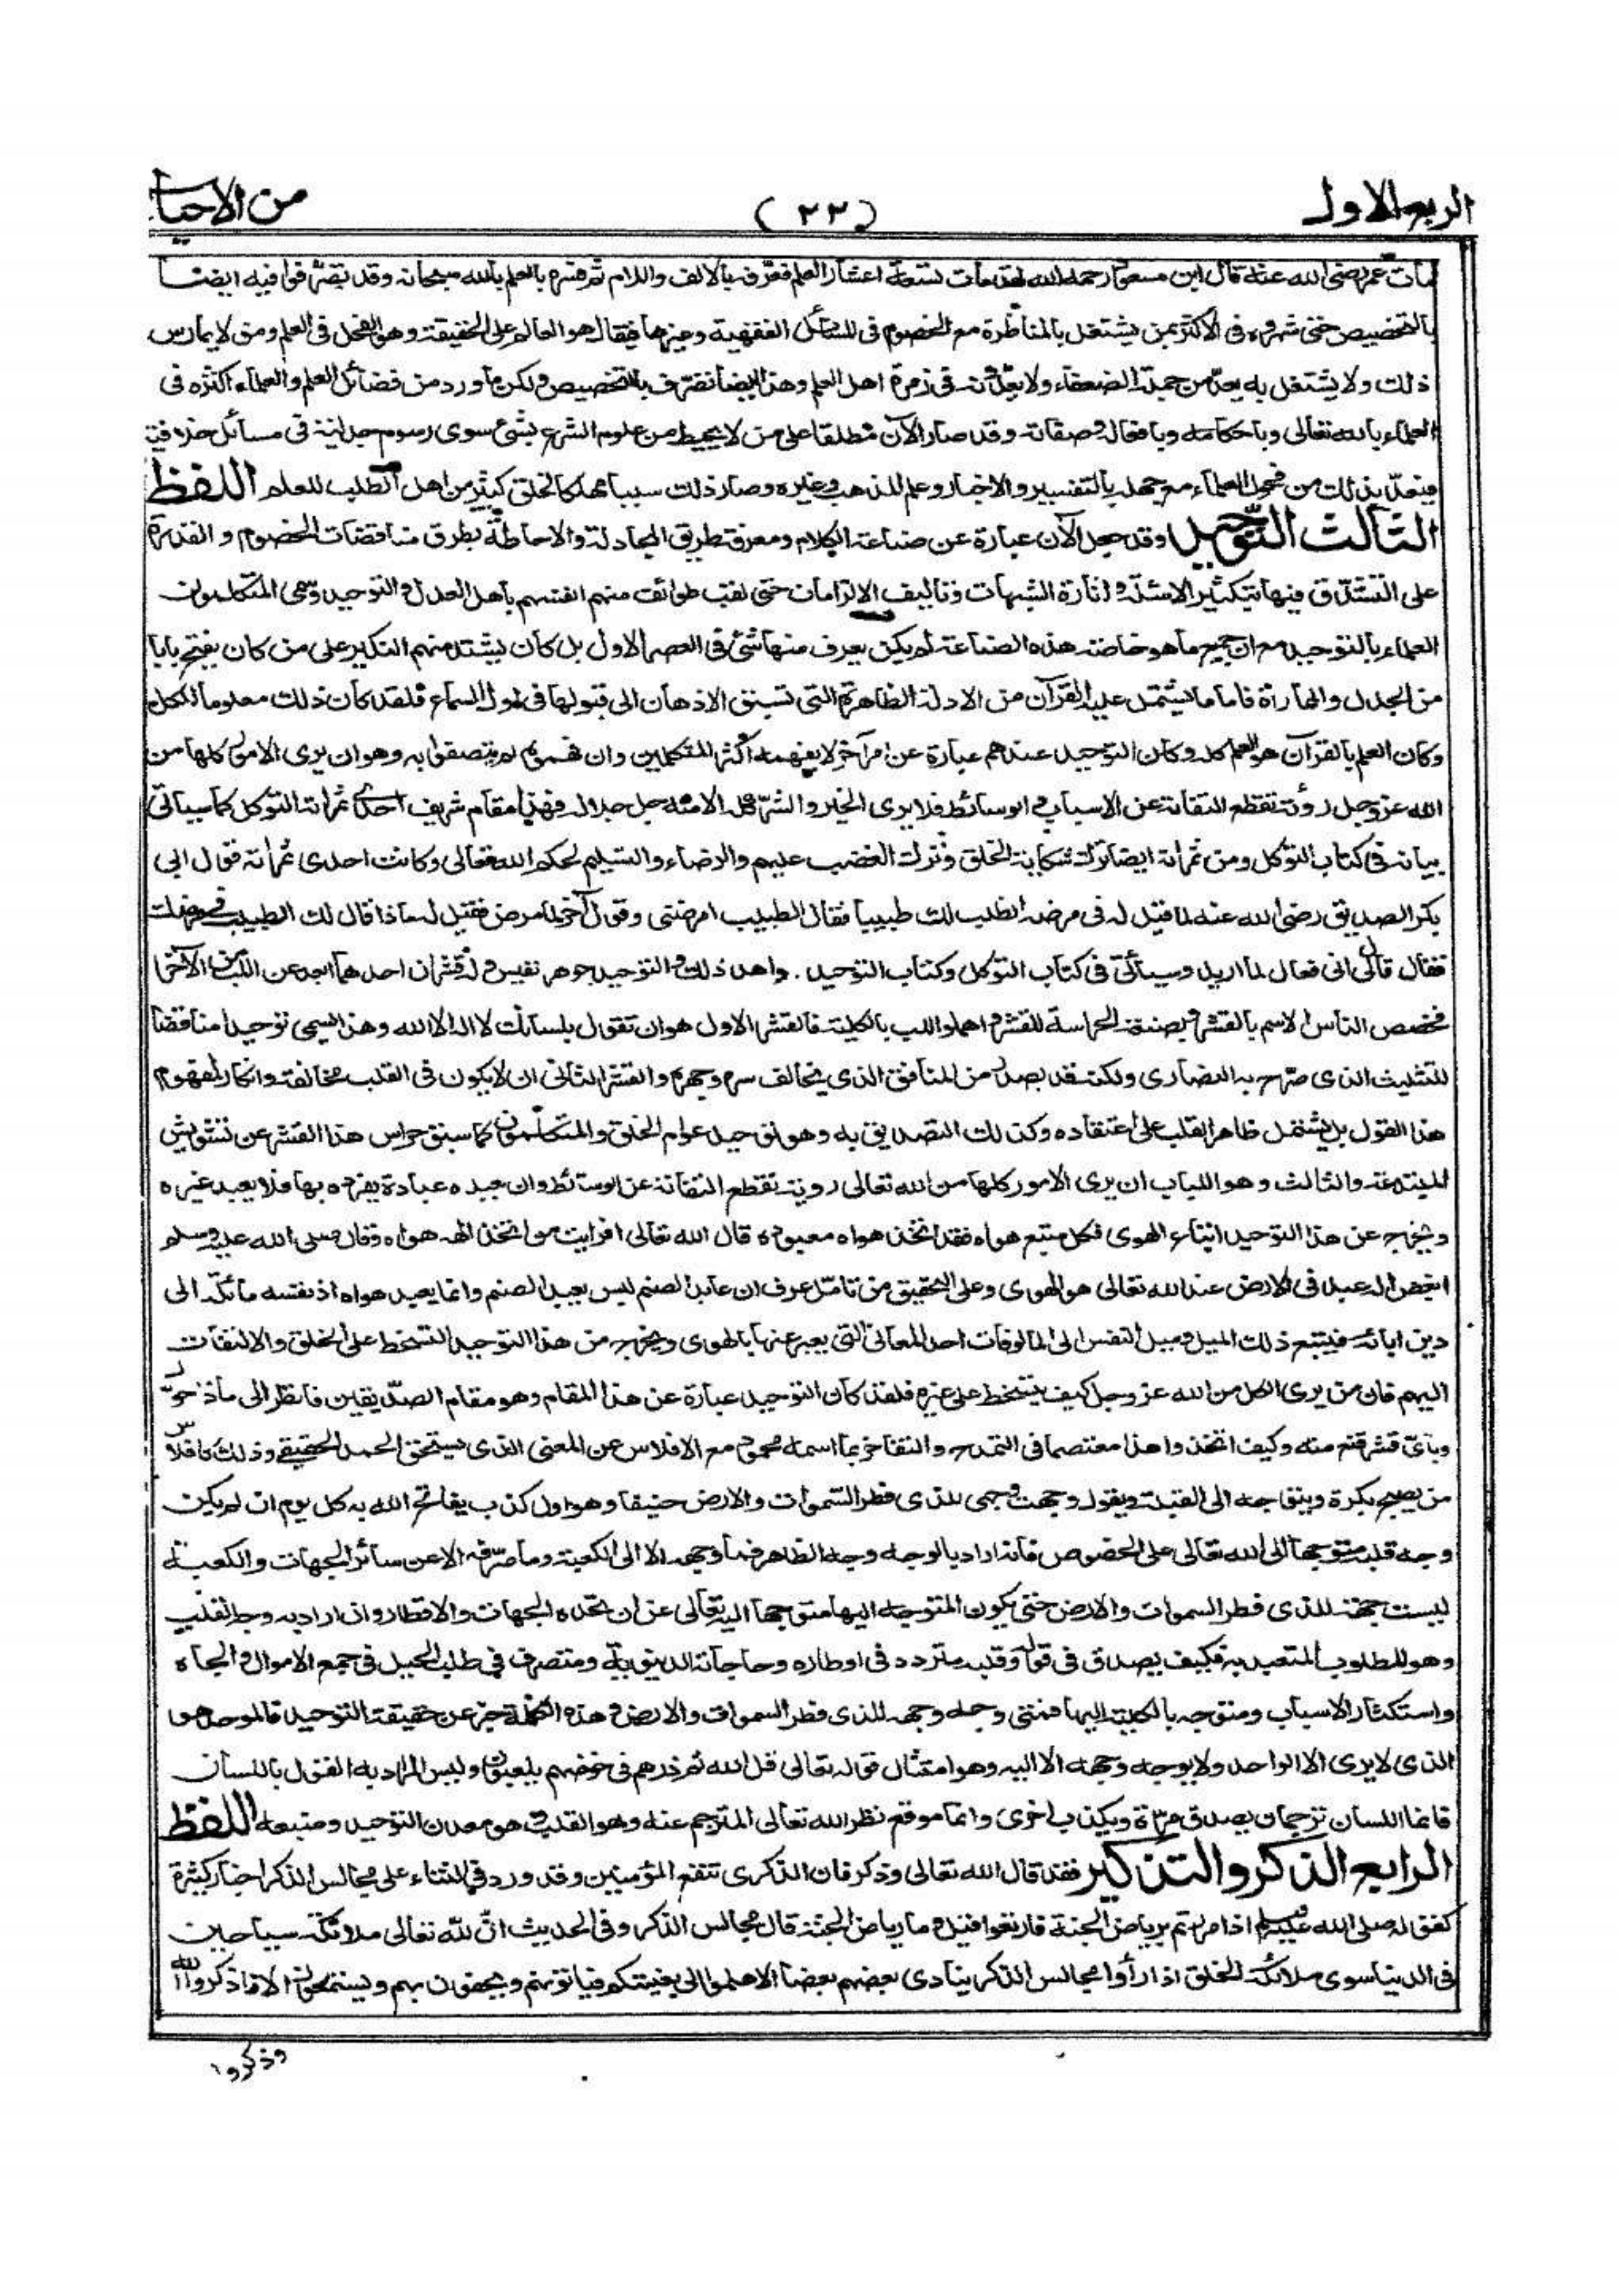 الربع الاول
(٢٣)
من الاحياء
مات عمر رضى الله عنه قال ابن مسعود رحمه الله لقد مات تسعة اعشار العلم فعرّف بالالف واللام ثم فسره بالعلم بالله سبحانه وقد تصرّفوا فيه ايضا
بالتخصيص حتى شهروه فى الاكثر بمن يشتغل بالمناظرة مع الخصوم فى المسائل الفقهية وغيرها فيقال هو العالم على الحقيقة وهو الفحل فى العلم ومن لا يمارس
ذلك ولا يشتغل به يعدّ من جملة الضعفاء ولا يعدّونه فى زمرة اهل العلم وهذا ايضا تصرّف بالتخصيص ولكن ما ورد من فضائل العلم والعلماء اكثره فى
العلماء بالله تعالى وباحكامه وبافعاله وصفاته وقد صار الآن مطلقا على من لا يحيط من علوم الشرع بشئ سوى رسوم جدلية فى مسائل خلافية
فيعدّ بذلك من فحول العلماء مع جهله بالتفسير والاخبار وعلم المذهب وغيره وصار ذلك سببا مهلكا لخلق كثير من اهل الطلب للعلم اللفظ
الثالث التوحيد وقد جعل الآن عبارة عن صناعة الكلام ومعرفة طريق المجادلة والاحاطة بطرق مناقضات الخصوم والقدرة
على التشدّق فيها بتكثير الاسئلة واثارة الشبهات وتاليف الالزامات حتى لقب طوائف منهم انفسهم باهل العدل والتوحيد وسمى المتكلمون
العلماء بالتوحيد مع ان جميع ما هو خاصة هذه الصناعة لم يكن يعرف منها شئ فى العصر الاول بل كان يشتد منهم النكير على من كان يفتح بابا
من الجدل والمماراة فاما ما يشتمل عليه القرآن من الادلة الظاهرة التى تسبق الاذهان الى قبولها فى اول السماع فلقد كان ذلك معلوما للكل
وكان العلم بالقرآن هو العلم كله وكان التوحيد عندهم عبارة عن امر آخر لا يفهمه اكثر المتكلمين وان فهموه لم يتصفوا به وهو ان يرى الامور كلها من
الله عز وجل رؤية تقطع التفاته عن الاسباب والوسائط فلا يرى الخير والشرّ كله الا منه جل جلاله فهذا مقام شريف احدى ثمراته التوكل كما سياتى
بيانه فى كتاب التوكل ومن ثمراته ايضا ترك شكاية الخلق وترك الغضب عليهم والرضاء والتسليم لحكم الله تعالى وكانت احدى ثمراته قول ابى
بكر الصديق رضى الله عنه لما قيل له فى مرضه انطلب لك طبيبا فقال الطبيب امرضنى وقول آخر لما مرض فقيل له ماذا قال لك الطبيب فى مرضك
فقال قال لى انى فعال لما اريد وسيأتى فى كتاب التوكل وكتاب التوحيد . واهد ذلك والتوحيد جوهر نفيس وله قشران احدهما ابعد عن اللب من الآخر
فخصص الناس الاسم بالقشر وبصنعة الحراسة للقشر واهملوا اللب بالكلية فالقشر الاول هو ان تقول بلسانك لا اله الا الله وهذا يسمى توحيدا مناقضا
للتثليث الذى صرّح به النصارى ولكنه قد يصدر من المنافق الذى يخالف سره وجهره والقشر الثانى ان لا يكون فى القلب مخالفة وانكار لمفهوم
هذا القول بل يشتمل ظاهر القلب على اعتقاده وكذلك التصديق به وهو توحيد عوام الخلق والمتكلمون كما سبق حراس هذا القشر عن تشويش
المبتدعة والثالث وهو اللباب ان يرى الامور كلها من الله تعالى روية تقطع التفاته عن الوسائط وان يعبده عبادة يفرده بها فلا يعبد غيره
ويخرج عن هذا التوحيد اتباع الهوى فكل متبع هواه فقد اتخذ هواه معبوده قال الله تعالى افرايت من اتخذ الهه هواه وقال صلى الله عليه وسلم
ابغض اله عبد فى الارض عند الله تعالى هو الهوى وعلى التحقيق من تامّل عرف ان عابد الصنم ليس يعبد الصنم وانما يعبد هواه اذ نفسه مائلة الى
دين ابائه فيتبع ذلك الميل وميل النفس الى المالوفات احد المعانى التى يعبر عنها بالهوى ويخرج من هذا التوحيد التسخط على الخلق والالتفات
اليهم فان من يرى الكل من الله عز وجل كيف يتسخط على غيره فلقد كان التوحيد عبارة عن هذا المقام وهو مقام الصدّيقين فانظر الى ماذا حوّل
وباىّ قشر قنع منه وكيف اتخذوا هذا معتصما فى التمدح والتفاخر بما اسمه محمود مع الافلاس عن المعنى الذى يستحق الحمد الحقيقى وذلك كافلاس
من يصبح بكرة ويتوجه الى القبلة ويقول وجهت وجهى للذى فطر السموات والارض حنيفا وهو اول كذب يفاتح الله به كل يوم ان لم يكن
وجه قلبه متوجها الى الله تعالى على الخصوص فانه اراد بالوجه وجه الظاهر فما وجهه الا الى الكعبة وما صرّفه الا عن سائر الجهات والكعبة
ليست جهة للذى فطر السموات والارض حتى يكون المتوجه اليها متوجها اليه تعالى عن ان تحدّه الجهات والاقطار وان اراد به وجه القلب
وهو المطلوب المتعبد به فكيف يصدق فى قوله وقلبه متردد فى اوطاره وحاجاته الدنيوية ومتصرف فى طلب الحيل فى جمع الاموال والجاه
واستكثار الاسباب ومتوجه بالكلية اليها فمتى وجه وجهه للذى فطر السموات والارض وهذه الكلمة خبر عن حقيقة التوحيد فالموحد هو
الذى لا يرى الا الواحد ولا يوجه وجهه الا اليه وهو امتثال قوله تعالى قل الله ثم ذرهم فى خوضهم يلعبون وليس المراد به القول باللسان
فانما اللسان ترجمان يصدق مرّة ويكذب اخرى وانما موقع نظر الله تعالى المترجم عنه وهو القلب هو معدن التوحيد ومنبعه اللفظ
الرابع الذكر والتذكير فقد قال الله تعالى وذكر فان الذكرى تنفع المؤمنين وقد ورد فى الثناء على مجالس الذكر اخبار كثيرة
كقوله صلى الله عليه وسلم اذا مررتم برياض الجنة فارتعوا قيل وما رياض الجنة قال مجالس الذكر وفى الحديث انّ لله تعالى ملائكة سياحين
فى الدنيا سوى ملائكة الخلق اذا رأوا مجالس الذكر ينادى بعضهم بعضا الا هلموا الى بغيتكم فياتونهم ويحفون بهم ويستمعون الا فاذكروا الله
وذكروا